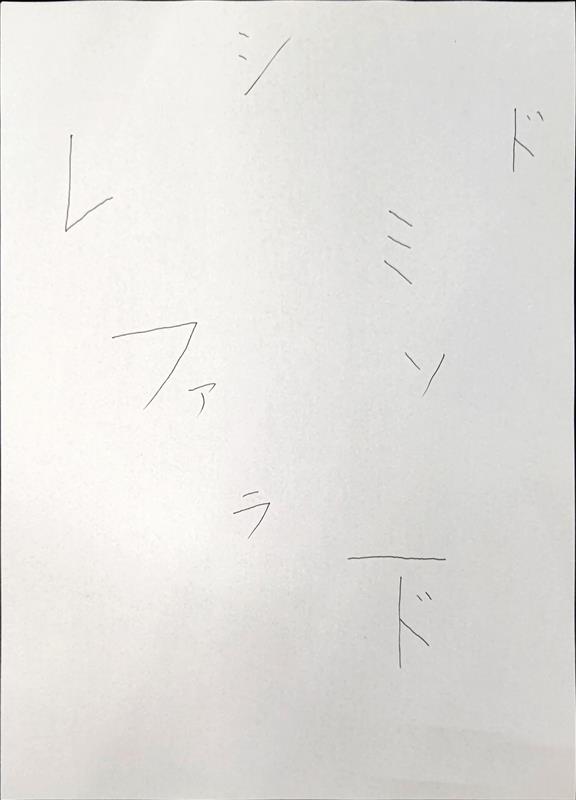 シ
ド
レ
ミ
ファ
ソ
ラ
ド